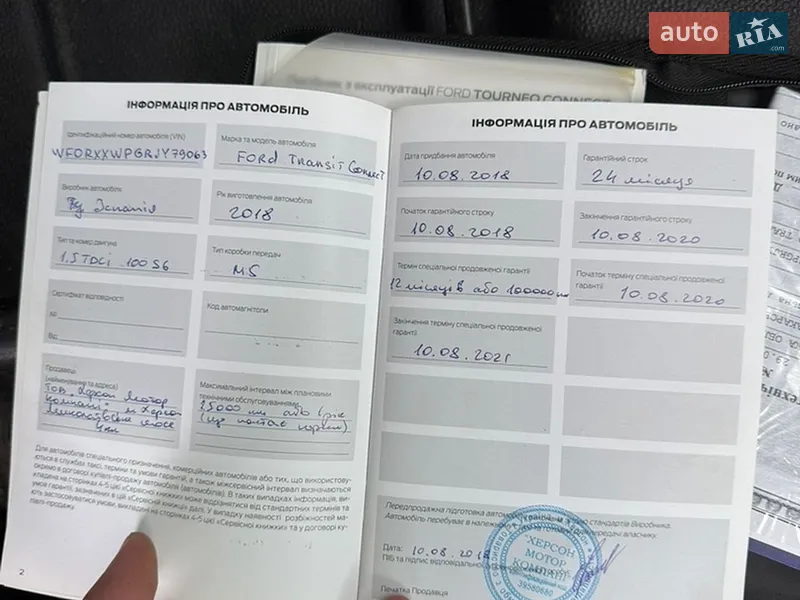 auto RIA .com
Посібник з експлуатації FORD TOURNEO CONNECT
ІНФОРМАЦІЯ ПРО АВТОМОБІЛЬ
Ідентифікаційний номер автомобіля (VIN)
WF0RXXWPGRJY79063
Марка та модель автомобіля
Ford Transit Connect
Виробник автомобіля
Іспанія
Рік виготовлення автомобіля
2018
Тип та номер двигуна
1.5 TDCi 100 S6
Тип коробки передач
M5
Сертифікат відповідності
№
Від
Код автомагнітоли
Продавець
(найменування та адреса)
ТОВ "Херсон Мотор
Компані" м. Херсон
Миколаївське шосе
Максимальний інтервал між плановими
технічними обслуговуваннями
25000 км або 1 рік
(що настає
Для автомобілів спеціального призначення, комерційних автомобілів або тих, що використову-
ються в службах таксі, терміни та умови гарантій, а також міжсервісний інтервал визначаються
окремо в договорі купівлі-продажу автомобіля (автомобілів). В таких випадках інформація, ви-
кладена на сторінках 4-5 цієї «Сервісної книжки» може відрізнятися від стандартних термінів та
умов гарантії, вказаних в цій «Сервісній книжці» далі. У випадку наявності розбіжностей ма-
ють застосовуватися умови, викладені на сторінках 4-5 цієї «Сервісної книжки» та у договорі ку-
півлі-продажу.
2
ІНФОРМАЦІЯ ПРО АВТОМОБІЛЬ
Дата придбання автомобіля
10.08.2018
Гарантійний строк
24 місяця
Початок гарантійного строку
10.08.2018
Закінчення гарантійного строку
10.08.2020
Термін спеціальної продовженої гарантії
12 місяців або 100000 км
Початок терміну спеціальної продовженої
гарантії
10.08.2020
Закінчення терміну спеціальної продовженої
гарантії
10.08.2021
Передпродажна підготовка автомобіля
стандартів Виробника.
Автомобіль перебуває в належному
передачі власнику:
Дата: 10.08.201
ПІБ та підпис відповідальної
Печатка Продавця
ХЕРСОН
МОТОР
КОМПАНІ
39580680